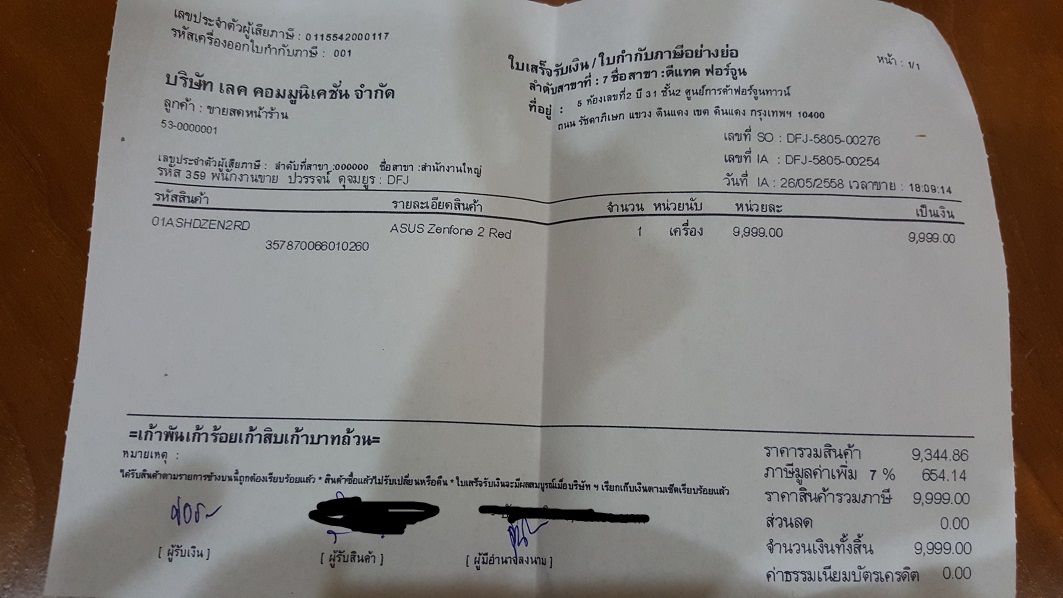 เลขประจำตัวผู้เสียภาษี : 0115542000117
รหัสเครื่องออกใบกำกับภาษี : 001
ใบเสร็จรับเงิน/ใบกำกับภาษีอย่างย่อ
หน้า : 1/1
บริษัท เลค คอมมูนิเคชั่น จำกัด
ลำดับสาขาที่ : 7 ชื่อสาขา :ดีแทค ฟอร์จูน
ที่อยู่ : 5 ห้องเลขที่2 บี 31 ชั้น2 ศูนย์การค้าฟอร์จูนทาวน์
ถนน รัชดาภิเษก แขวง ดินแดง เขต ดินแดง กรุงเทพฯ 10400
ลูกค้า : ขายสดหน้าร้าน
53-0000001
เลขที่ SO : DFJ-5805-00276
เลขที่ IA : DFJ-5805-00254
วันที่ IA : 26/05/2558 เวลาขาย : 18:09:14
เลขประจำตัวผู้เสียภาษี : ลำดับที่สาขา :000000 ชื่อสาขา :สำนักงานใหญ่
รหัส 359 พนักงานขาย ปวรรจน์ ดุจมยูร : DFJ
รหัสสินค้า รายละเอียดสินค้า จำนวน หน่วยนับ หน่วยละ เป็นเงิน
01ASHDZEN2RD ASUS Zenfone 2 Red 1 เครื่อง 9,999.00 9,999.00
357870066010260
=เก้าพันเก้าร้อยเก้าสิบเก้าบาทถ้วน=
หมายเหตุ :
ได้รับสินค้าตามรายการข้างบนนี้ถูกต้องเรียบร้อยแล้ว * สินค้าซื้อแล้วไม่รับเปลี่ยนหรือคืน * ใบเสร็จรับเงินจะมีผลสมบูรณ์เมื่อบริษัท ฯ เรียกเก็บเงินตามเช็คเรียบร้อยแล้ว
ราคารวมสินค้า 9,344.86
ภาษีมูลค่าเพิ่ม 7 % 654.14
ราคาสินค้ารวมภาษี 9,999.00
ส่วนลด 0.00
จำนวนเงินทั้งสิ้น 9,999.00
ค่าธรรมเนียมบัตรเครดิต 0.00
[ ผู้รับเงิน ] [ ผู้รับสินค้า ] [ ผู้มีอำนาจลงนาม ]